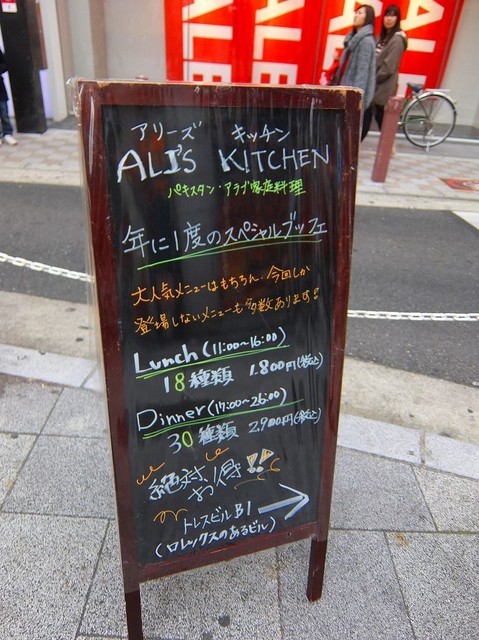 SALE
SALE
SALE
アリーズ キッチン
ALI'S KITCHEN
パキスタン・アラブ家庭料理
年に1度のスペシャルブッフェ
大人気メニューはもちろん、今回しか
登場しないメニューも多数あります!
Lunch (11:00~16:00)
18種類 1.800円(税込)
Dinner (17:00~26:00)
30種類 2.900円(税込)
絶対、
お得!!
トレスビルB1
(ロレックスのあるビル)